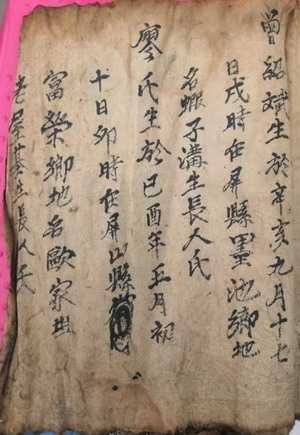 曾紹斌生於辛亥九月十七
日戌時在屏縣墨池鄉地
名蝦子溝生長人氏
廖氏生於己酉年五月初
十日卯時在屏山縣
富榮鄉地名歐家
老屋基生長人氏